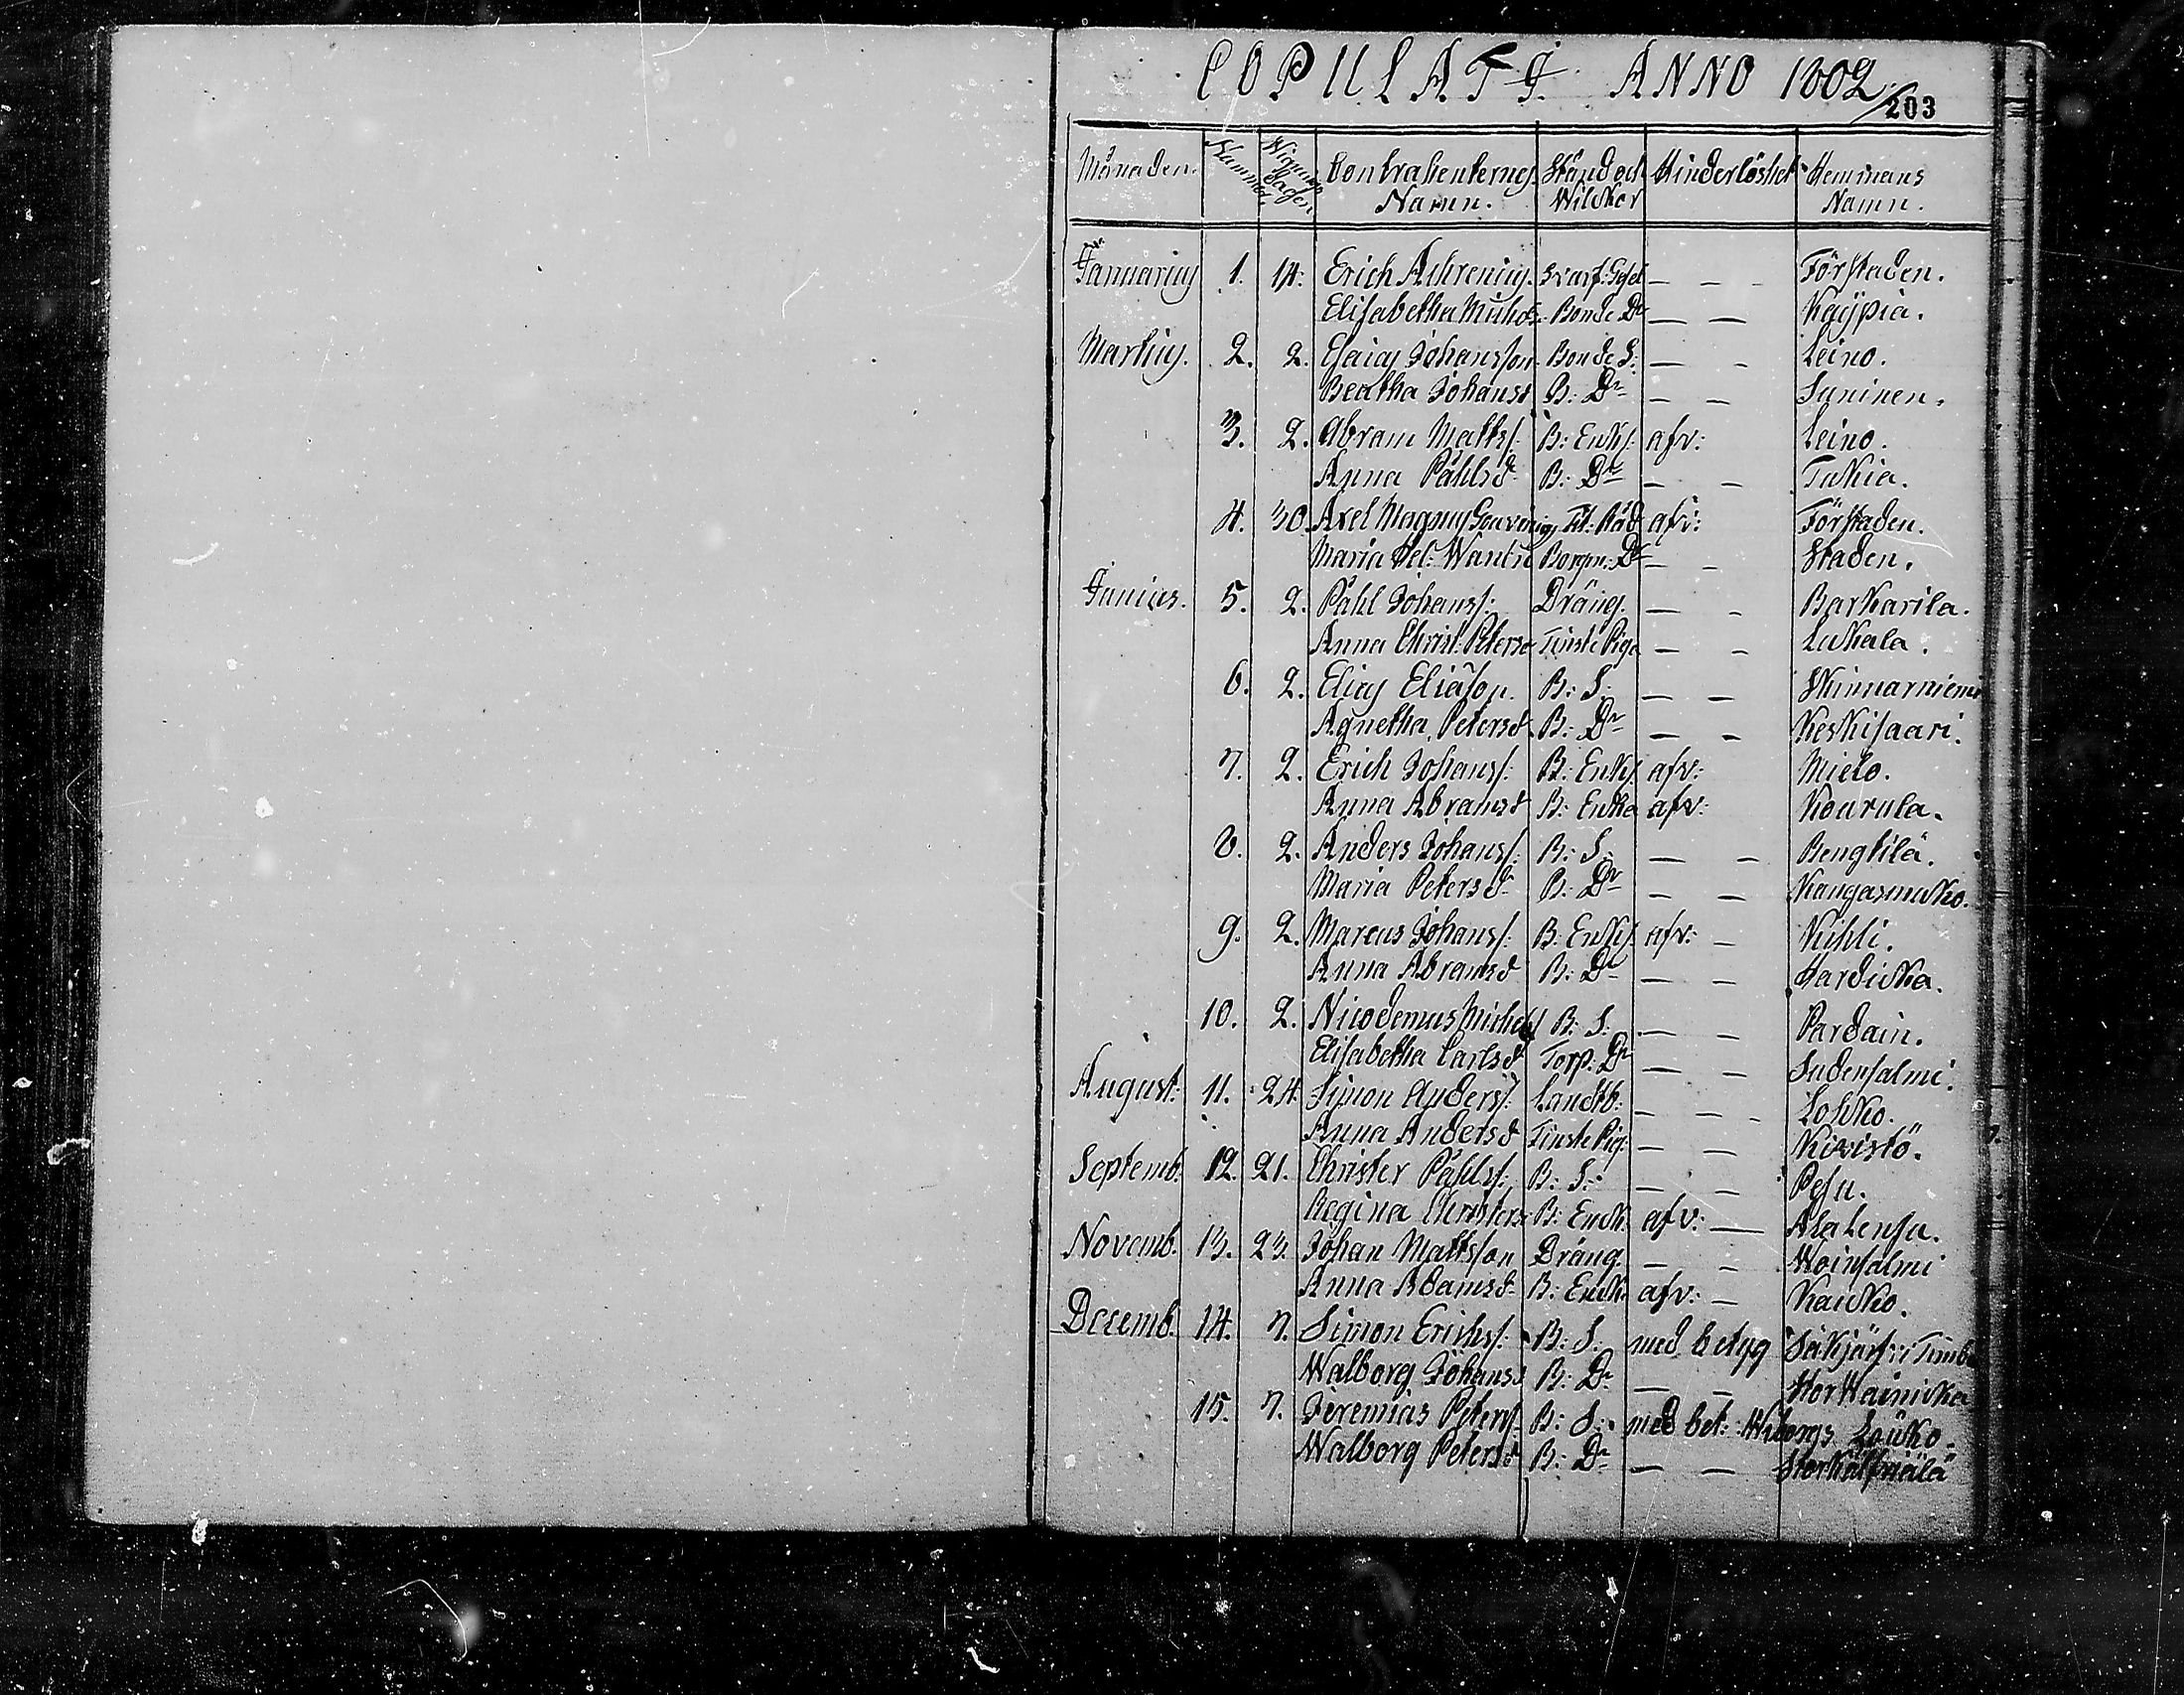 COPULATI ANNO 1802
203
Månaden. Nummer. Wignings dagen Contrahenternes Namn. Stånd och Wilckor Hinderlöshet Hemmans Namn.
Januarius 1. 14. Erich Ahrenius. Svarf: Gesel — — - Förstaden.
Elisabetha Bonde Dr — — Kaÿpia.
Martius. 2. 2. Esaias Johansson Bonde S: — - Leino.
Beatha Johansd B: Dr — — Suninen.
3. 2. Abram Matts: B: Enkl: afv: Leino.
Anna Påhlsdr B: Dr — — Tukia.
4. 30. Axel Magnus Tit: Råd afv: Förstaden.
Maria Hel: Borgm: Dr — - Staden.
Junius. 5. 2. Påhl Johans: Dräng. — - Barkarila.
Anna Christ: Petersd Tienste Piga — - Lukala.
6. 2. Elias Eliason. B: S: — — Skinnarniemi
Agnetha Petersd B: Dr — — Keskisaari.
7. 2. Erich Johans: B: Enkl afv: Mielo.
Anna Abramsd B: Encka afv: Kourula.
8. 2. Anders Johans: B: S: — — Bengtilä.
Maria Petersdr B: Dr — — Kangasmucko.
9. 2. Marcus Johans: B: Enkl afv: — Kihli.
Anna Abramsd B: Dr — — Hardicka.
10. 2. Nicodemus Michels B: S: — — Pardain.
Elisabetha Carlsd Torp: Dr — — Sudensalmi.
August: 11. 24. Simon Anders: Landtb: — — - Lohko.
Anna Andersd Tienste Pig: — — Kivistö.
Septemb: 12. 21. Christer Påhls: B: S: — — Pesu.
Regina Christers B: Enck. afv: — Alalensu.
Novemb. 13. 23. Johan Mattsson Dräng. — - Woinsalmi
Anna Adamsd B: Enck. afv: — Kaucko.
Decemb. 14. 7. Simon Erichs: B: S: med betyg Säkjärfvi
Walborg Johansd B: Dr — — Stor Wainicka
15. 7. Jeremias Peters: B: S: med bet: Wiborgs Loucko.
Walborg Petersd B: Dr — —